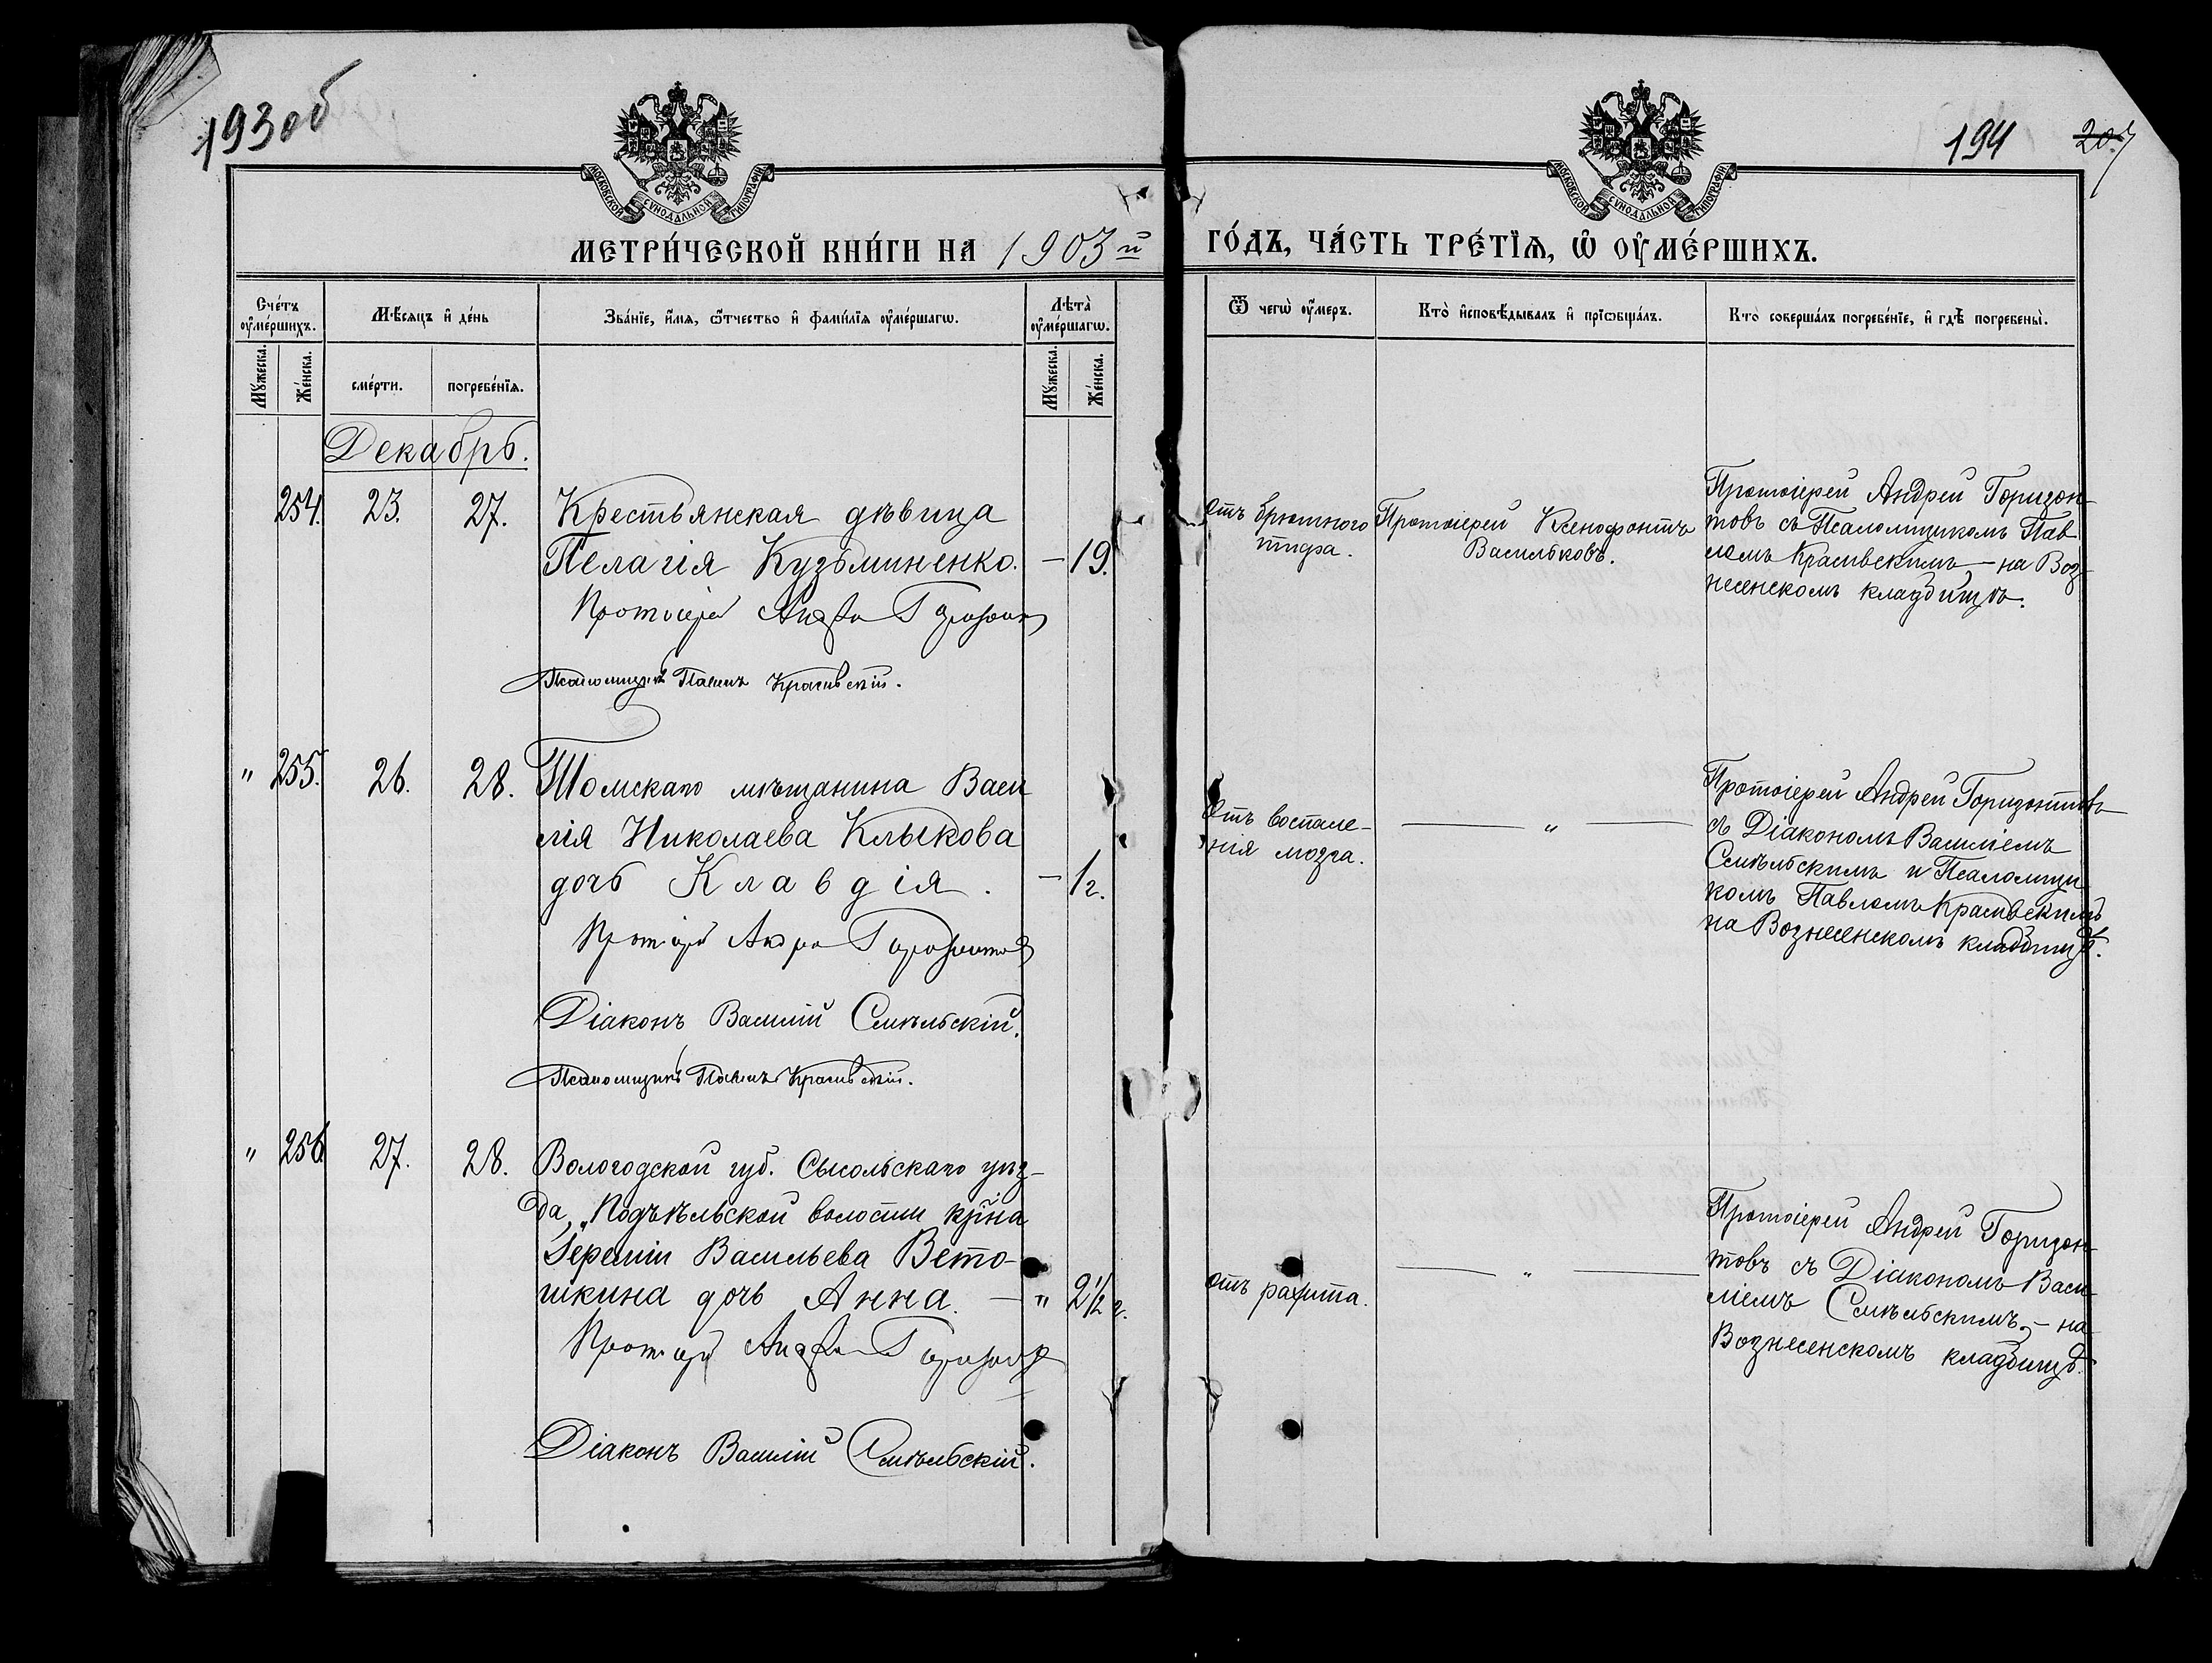 193об
194
207
МОСКОВСКОЙ СУНОДАЛЬНОЙ ТИПОГРАФІИ
МОСКОВСКОЙ СУНОДАЛЬНОЙ ТИПОГРАФІИ
МЕТРИ́ЧЕСКОЙ КНИ́ГИ НА 1903й ГО́ДЪ, ЧА́СТЬ ТРЕ́ТІѦ, Ѡ ОУ҆МЕ́РШИХЪ.
Сче́тъ оу҆ме́ршихъ.
Мꙋ́жеска.
Же́нска.
Мѣ́сяцъ и҆ де́нь
сме́рти.
погребе́нїѧ.
Зва́нїе, и҆́мѧ, ѻ҆́тчество и҆ фамі́лїѧ оу҆ме́ршагѡ.
Лѣта̀ оу҆ме́ршагѡ.
Мꙋ́жеска.
Же́нска.
Ѿ чегѡ̀ оу҆́меръ.
Кто̀ и҆сповѣ́дывалъ и҆ прїѡбща́лъ.
Кто̀ соверша́лъ погребе́нїе, и҆ гдѣ̀ погребены̀.
Декабрь.
254. 23. 27.
Крестьянская дѣвица
Пелагія Кузьминенко. — 19.
Протоіерей Андрей Горизонтовъ
Псаломщикъ Павелъ Красивскій.
отъ брюшного
тифа.
Протоіерей Ксенофонтъ
Васильковъ.
Протоіерей Андрей Горизон-
товъ съ Псаломщикомъ Пав
ломъ Красивскимъ, — на Воз-
несенскомъ кладбищѣ.
" 255. 26. 28.
Томскаго мѣщанина Васи
лія Николаева Клыкова
дочь Клавдія. — 1г.
Протоіерей Андрей Горизонтовъ
Діаконъ Василій Смѣльскій.
Псаломщикъ Павелъ Красивскій.
Отъ воспале-
нія мозга.
— " —
Протоіерей Андрей Горизонтовъ
съ Діакономъ Василіемъ
Смѣльскимъ и Псаломщи
комъ Павломъ Красивскимъ
на Вознесенскомъ кладбищѣ.
" 256 27. 28.
Вологодской губ. Сысольскаго уѣз-
да, Подъѣльской волости кр-на
Іереміи Васильева Вето-
шкина дочь Анна. — " 2 1/2 г.
Протоіерей Андрей Горизонтовъ
Діаконъ Василій Смѣльскій.
отъ рахита.
— " —
Протоіерей Андрей Горизон-
товъ съ Діакономъ Васи-
ліемъ Смѣльскимъ, — на
Вознесенскомъ кладбищѣ.